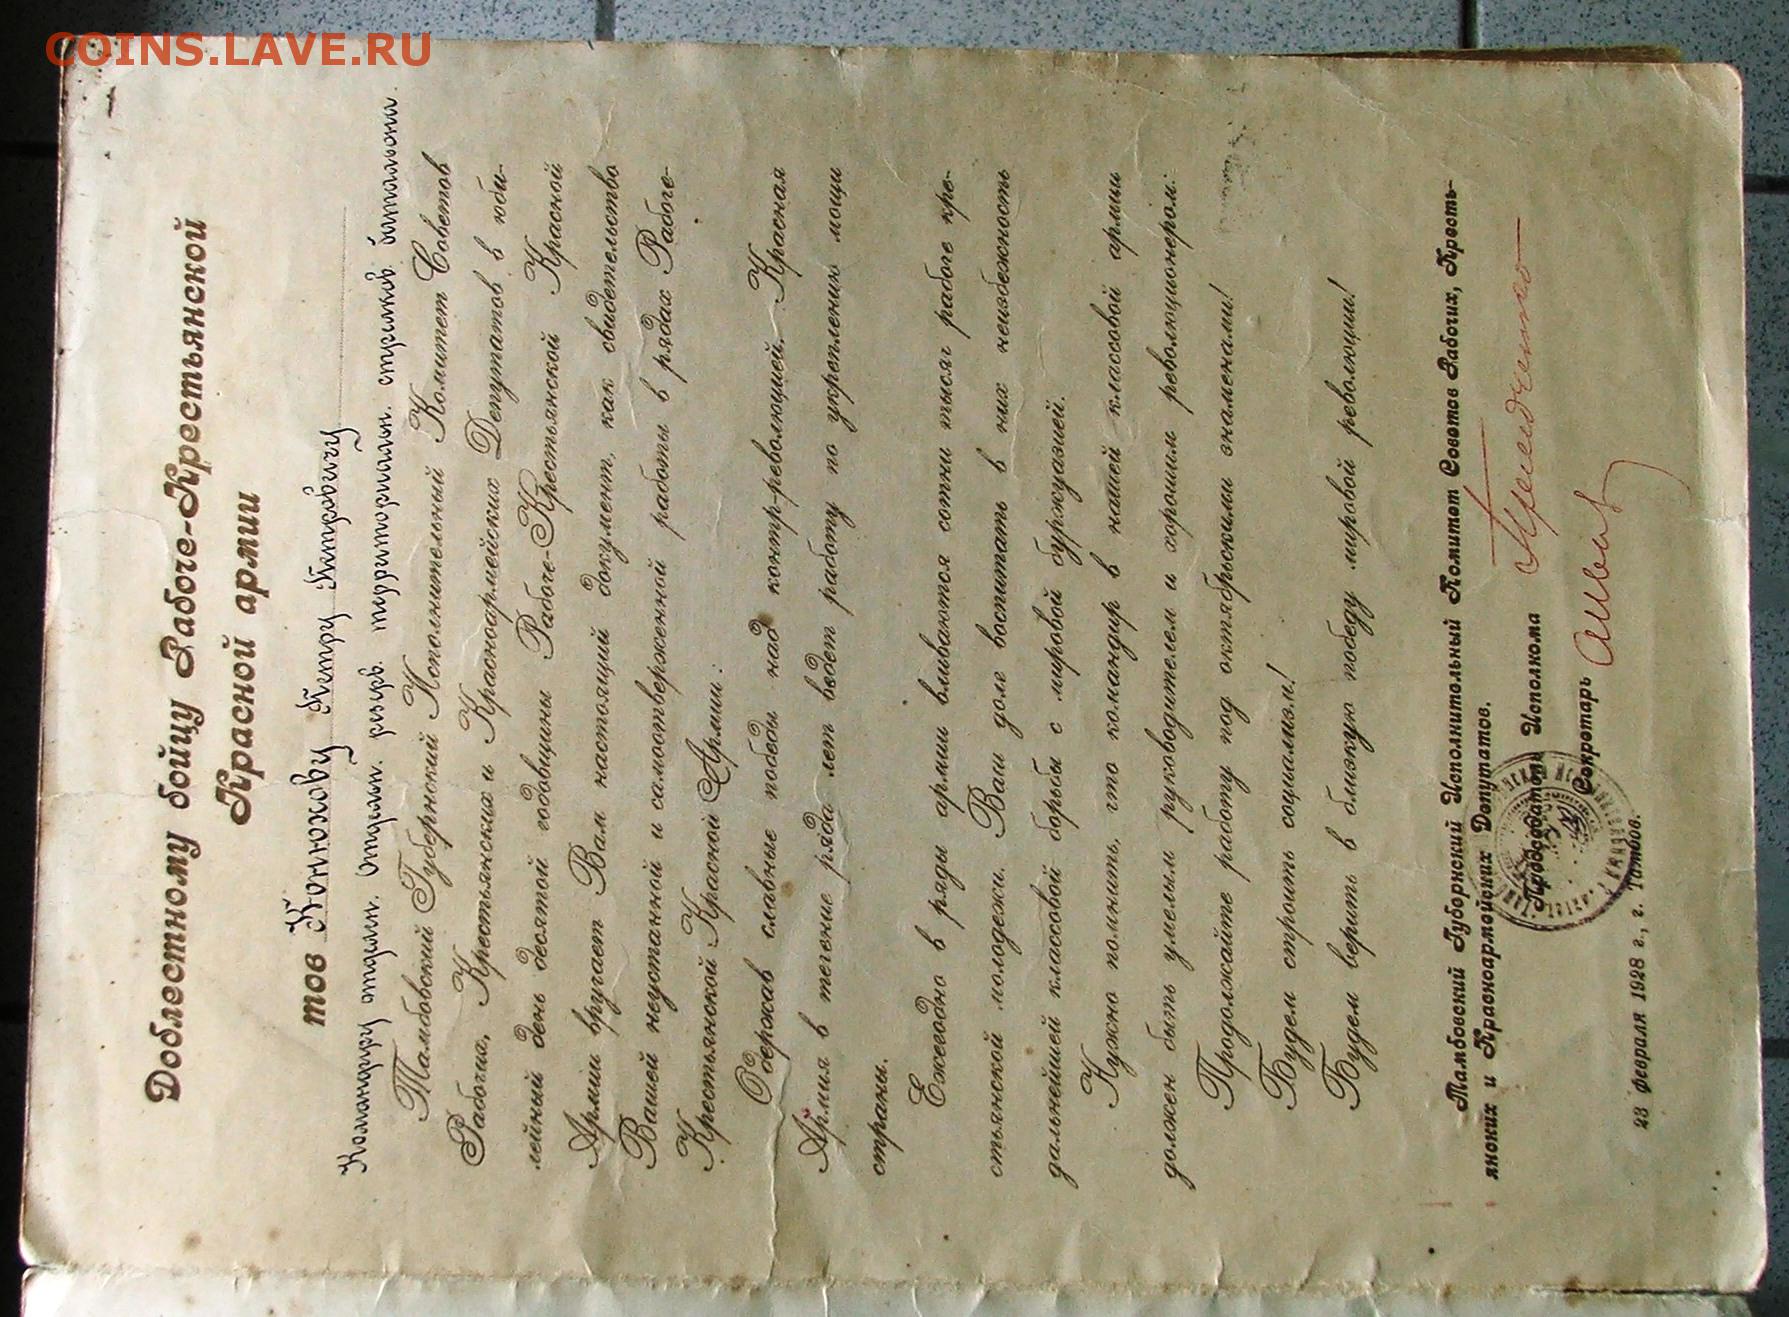 COINS.LAVE.RU
Доблестному бойцу Рабоче-Крестьянской
Красной армии
тов Конюхову Петру Петровичу
Командиру отдел. Отдел. резерв. территориальн. стрелков. батальона.
Тамбовский Губернский Исполнительный Комитет Советов
Рабочих, Крестьянских и Красноармейских Депутатов в юби-
лейный день десятой годовщины Рабоче-Крестьянской Красной
Армии вручает Вам настоящий документ, как свидетельство
Вашей неустанной и самоотверженной работы в рядах Рабоче-
Крестьянской Красной Армии:
Одержав славные победы над контр-революцией, Красная
Армия в течение ряда лет ведет работу по укреплению мощи
страны.
Ежегодно в ряды армии вливаются сотни тысяч рабоче кре-
стьянской молодежи. Ваш долг воспитать в них неизбежность
дальнейшей классовой борьбы с мировой буржуазией.
Нужно помнить, что командир в нашей классовой армии
должен быть умелым руководителем и хорошим революционером.
Продолжайте работу под октябрьскими знаменами!
Будем строить социализм!
Будем верить в близкую победу мировой революции!
Тамбовский Губернский Исполнительный Комитет Советов Рабочих, Кресть-
янских и Красноармейских Депутатов.
Председатель Исполкома
Секретарь
23 февраля 1928 г., г. Тамбов.